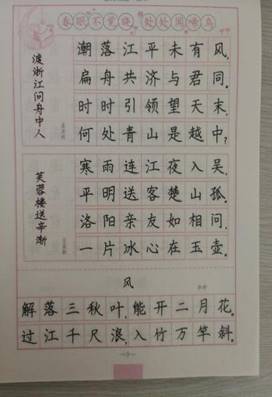 春眠不觉晓，处处闻啼鸟
渡浙江问舟中人
潮落江平未有风，
扁舟共济与君同。
时时引领望天末，
何处青山是越中？
芙蓉楼送辛渐
寒雨连江夜入吴，
平明送客楚山孤。
洛阳亲友如相问，
一片冰心在玉壶。
风
解落三秋叶，能开二月花。
过江千尺浪，入竹万竿斜。